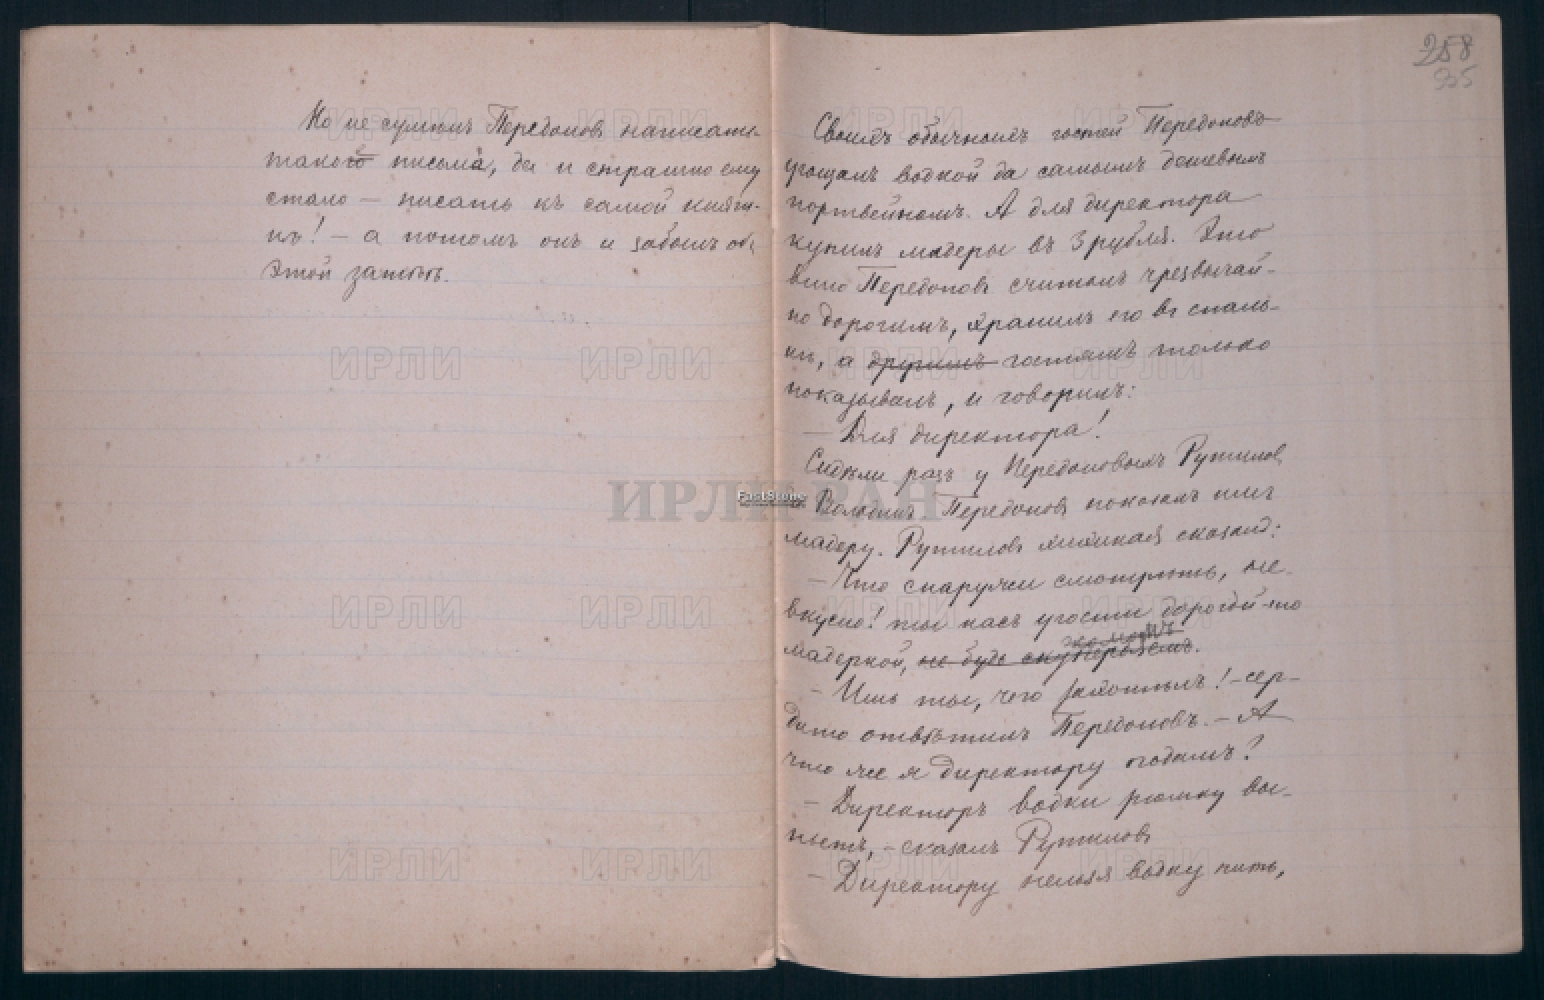 Но не сумѣлъ Передоновъ написать
такого письма, да и страшно ему
стало — писать къ самой княги-
нѣ! — а потомъ онъ и забылъ объ
этой затѣѣ.
258
935
Своихъ обычныхъ гостей Передоновъ
угощалъ водкой да самымъ дешевымъ
портвейномъ. А для директора
купилъ мадеры въ 3 рубля. Это
вино Передоновъ считалъ чрезвычай-
но дорогимъ, хранилъ его въ спаль-
нѣ, а другимъ гостямъ только
показывалъ, и говорилъ:
— Для директора!
Сидѣли разъ у Передоновыхъ Рутиловъ
и Володинъ. Передоновъ показалъ имъ
мадеру. Рутиловъ хихикая сказалъ:
— Что снаружи смотрѣть, не-
вкусно! ты насъ угости дорогой-то
мадеркой, не будь скупердяемъ.
жомомъ
— Ишь ты, чего захотѣлъ! — сер-
дито отвѣтилъ Передоновъ. — А
что же я директору подамъ?
— Директоръ водки рюмку вы-
пьетъ, — сказалъ Рутиловъ
— Директору нельзя водку пить,
ИРЛИ РАН
FastStone
ИРЛИ